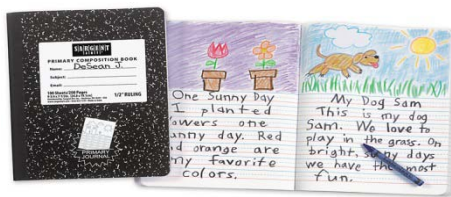 SARGENT
PRIMARY COMPOSITION BOOK
Name: DeSean J.
Subject:
100 Sheets/200 Pages
1/2" RULING
PRIMARY
JOURNAL
One Sunny Day
I planted
owers one
unny day. Red
d orange are
my favorite
colors.
My Dog Sam
This is my dog
Sam. We love to
play in the grass. On
bright, su ny days
we have the most
fun.